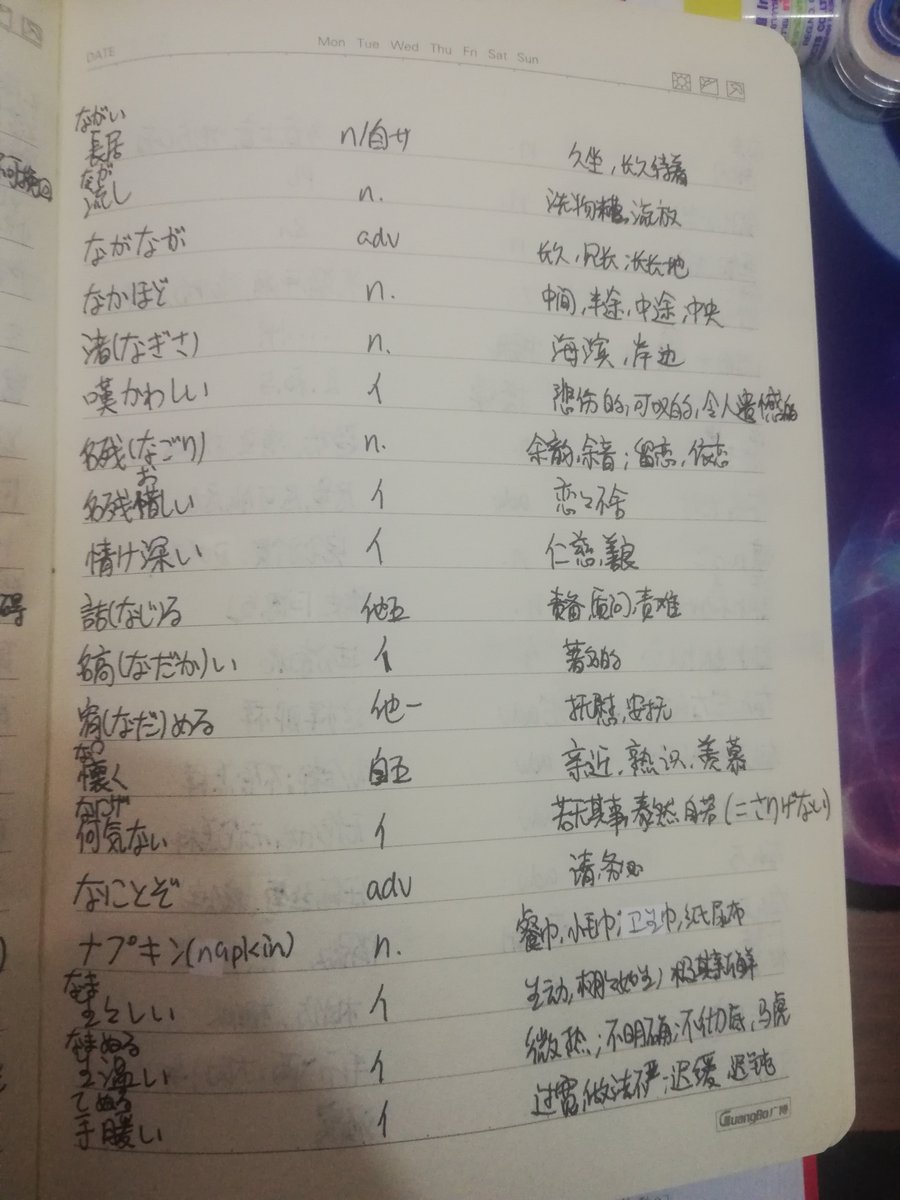 DATE
Mon Tue Wed Thu Fri Sat Sun
ながい
長居 n/自サ 久坐,长久待着
なが
流し n. 洗物槽,流放
ながなが adv 长久,冗长;长长地
なかほど n. 中间,半途,中途,中央
渚(なぎさ) n. 海滨,岸边
嘆かわしい イ 悲伤的,可叹的,令人遗憾的
名残(なごり) n. 余韵,余音;留恋,依恋
お
名残惜しい イ 恋々不舍
情け深い イ 仁慈,善良
詰(なじ)る 他五 责备,质问,责难
名高(なだか)い イ 著名的
宥(なだ)める 他一 抚慰,安抚
なつ
懐く 自五 亲近,熟识,羡慕
なにげ
何気ない イ 若无其事,泰然自若(=さりげない)
なにとぞ adv 请,务必
ナプキン(napkin) n. 餐巾,小毛巾;卫生巾,纸尿布
なま
生々しい イ 生动,栩々如生;极其新鲜
なまぬる
生温い イ 微热;不明确;不彻底,马虎
てぬる
手緩い イ 过宽,做法不严;迟缓,迟钝
GuangBo 广博
不可挽回
碍